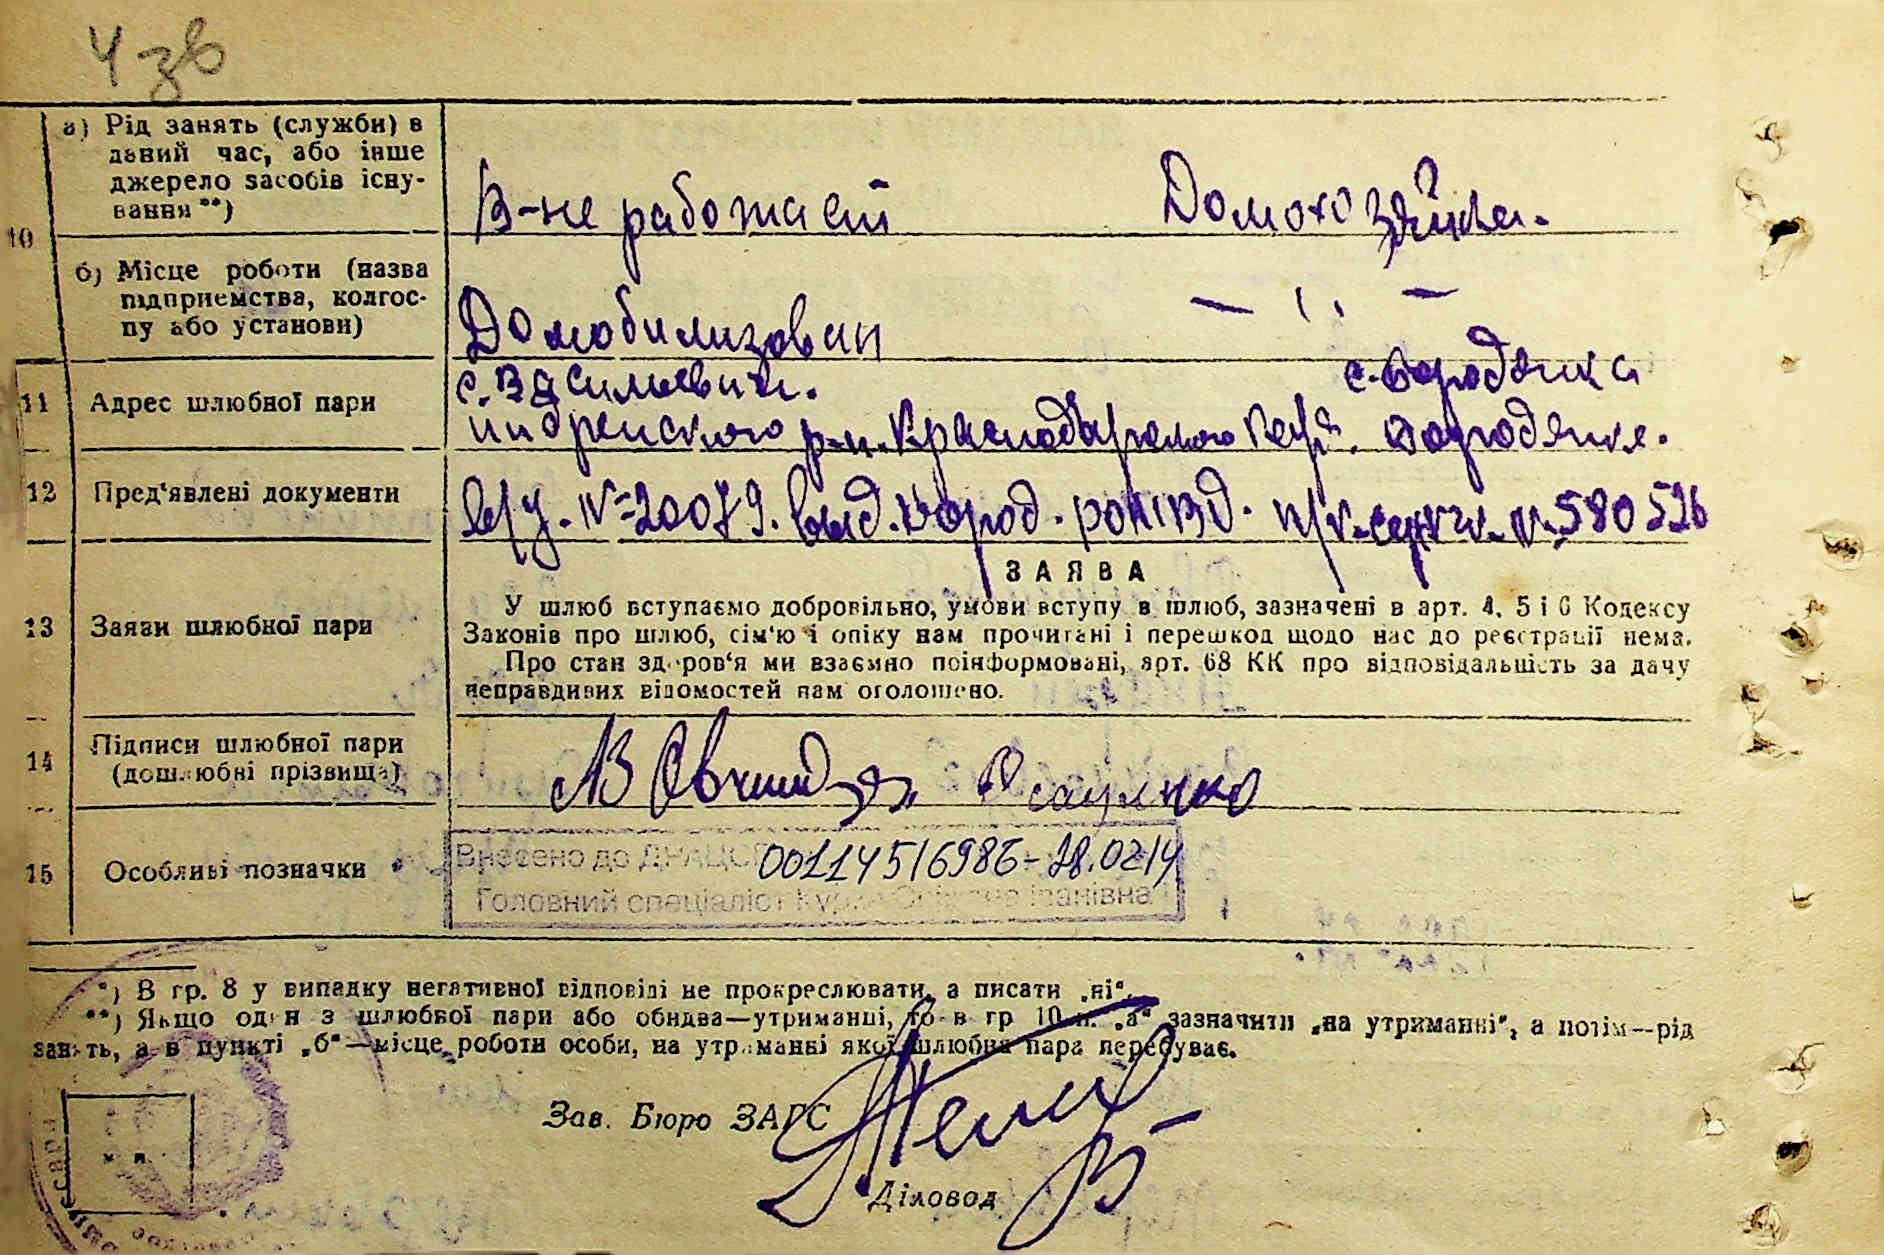 4 зв
а) Рід занять (служби) в
даний час, або інше
джерело засобів існу-
вання **)
В-не работает
Домохозяйка.
10
б) Місце роботи (назва
підприємства, колгос-
пу або установи)
Домобилизован
— " —
11
Адрес шлюбної пари
с. Васильевич.
с. Бородянка
р-н. Краснодарского Бородянка.
12
Пред'явлені документи
№ 20079. выд. Бород. РОМВД. п/к. № 580526
ЗАЯВА
13
Заяви шлюбної пари
У шлюб вступаємо добровільно, умови вступу в шлюб, зазначені в арт. 4, 5 і 6 Кодексу
Законів про шлюб, сім'ю і опіку нам прочитані і перешкод щодо нас до реєстрації нема.
Про стан здоров'я ми взаємно поінформовані, арт. 68 КК про відповідальність за дачу
неправдивих відомостей нам оголошено.
14
Підписи шлюбної пари
(дошлюбні прізвища)
15
Особливі позначки
Внесено до ДРАЦС 00114516986-28.02.14
Головний спеціаліст Іванівна
*) В гр. 8 у випадку негативної відповіді не прокреслювати, а писати „ні“.
**) Якщо один з шлюбної пари або обидва—утриманці, то в гр 10 п. „а“ зазначити „на утриманні“, а потім—рід
занять, а в пункті „б“—місце роботи особи, на утриманні якої шлюбна пара перебуває.
Зав. Бюро ЗАГС
м п.
Діловод